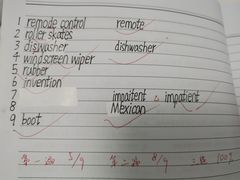 1 remode control remote
2 roller skates
3 diswasher dishwasher
4 windscreen wiper
5 rubber
6 invention
7 impaitent impatient
8 Mexican
9 boot
第一遍 5/9 第二遍 8/9 三遍 100%